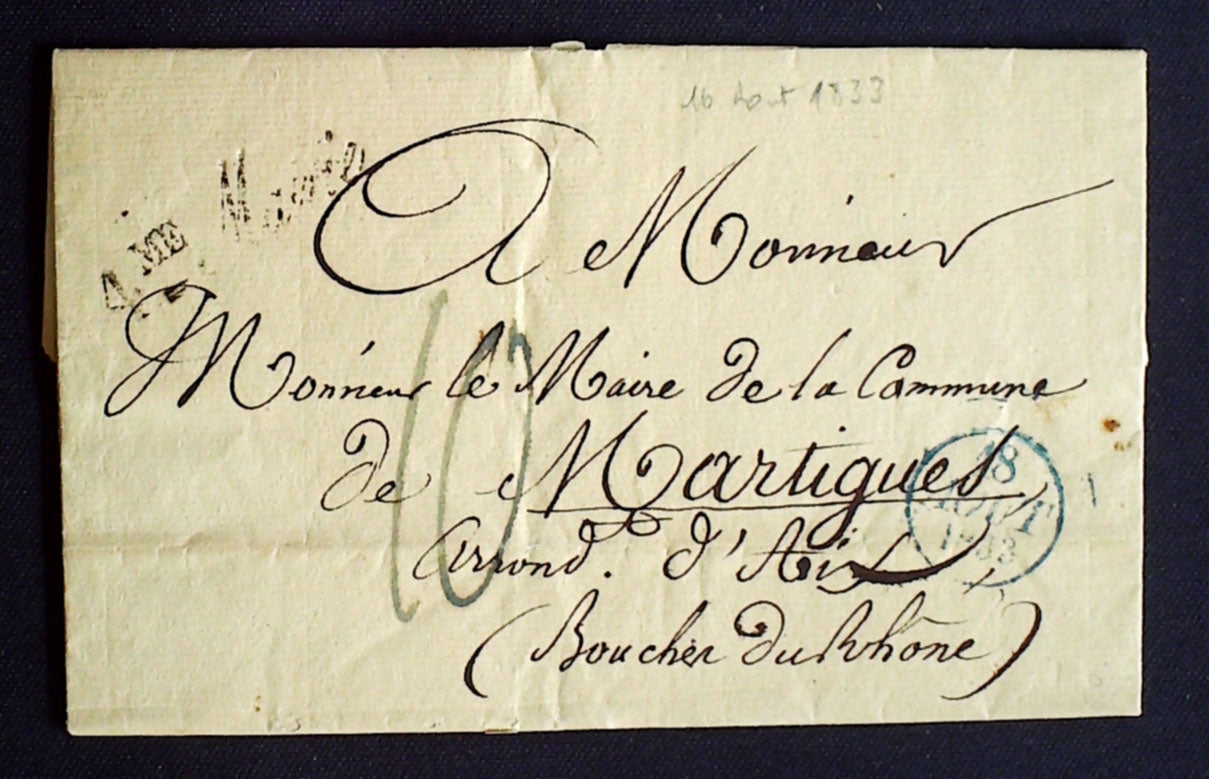 16 Aout 1833
A Monsieur
Monsieur le Maire de la Commune
de Martigues
Arrond. d'Aix
(Bouches du Rhône)
10
18
AOUT
1833